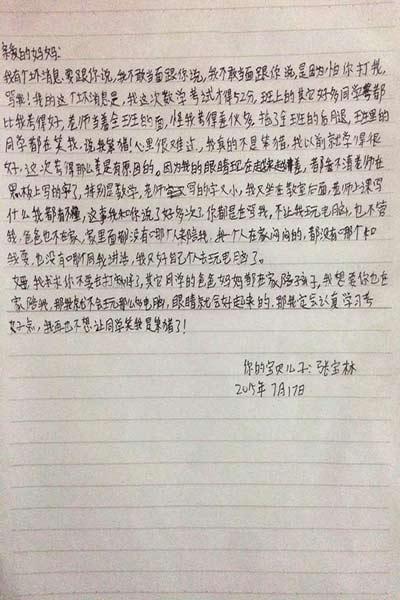 亲爱的妈妈:
我有个坏消息要跟你说,我不敢当面跟你说,我不敢当面跟你说,是因为怕你打我,
骂我!我的这个坏消息是,我这次数学考试才得52分,班上的其它好多同学都
比我考得好,老师当着全班的面,怪我考得差伙多,拖了全班的后腿,班里的
同学都在笑我,说我笨猪!心里很难过,我真的不是笨猪,我以前就学得很
好,这次考得那么差是有原因的。因为我的眼睛现在越来越差,都看不清老师在
黑板上写的字了,特别是数学,老师写的字又小,我又坐在教室后面,老师上课写
什么我都看不懂,这事我和你说了好多次了你都是在骂我,不让我玩电脑,也不管
我,爸爸也不在家,家里面都没有哪个来陪我,我一个人在家闷闷的,都没有哪个和
我耍,也没有哪个同我讲话,我只好自己个去玩电脑了。
妈,我求求你不要去打麻将了,其它同学的爸爸妈妈都在家陪孩子,我想要你也在
家陪我,那我就不会玩那么多电脑,眼睛就会好起来的,那我定会认真学习考
好点,我再也不想让同学笑我是笨猪了!
你的宝贝儿子:张宝林
2015年7月17日